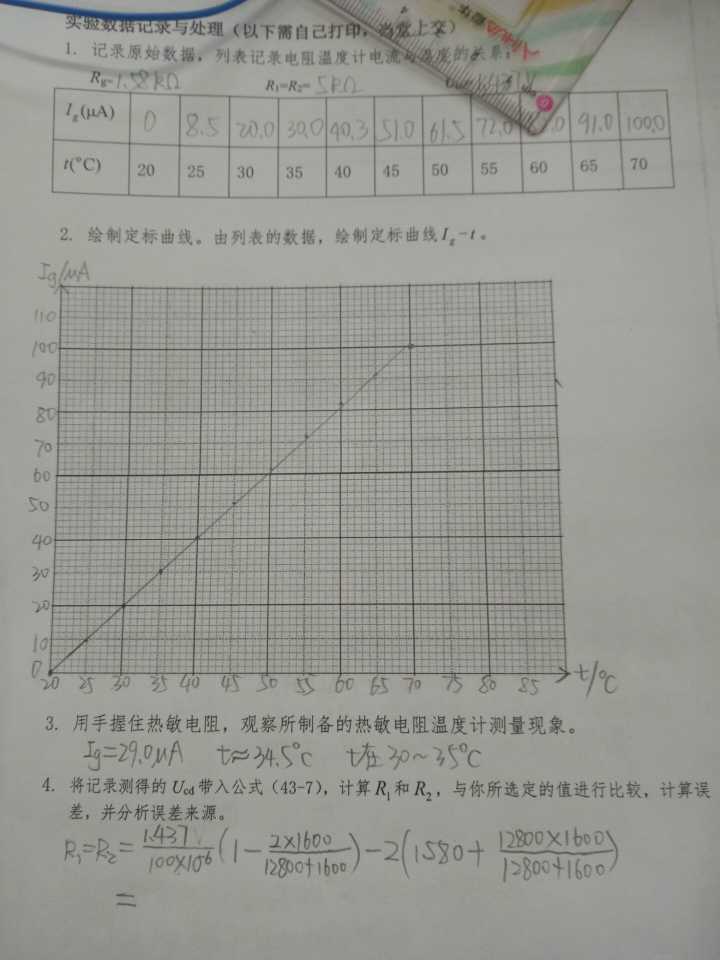 实验数据记录与处理（以下需自己打印，当堂上交）
1. 记录原始数据，列表记录电阻温度计电流与温度的关系：
Rg=1.58kΩ R₁=R₂=5kΩ
Ig(μA) 0 8.5 20.0 30.0 40.3 51.0 61.5 72.0 91.0 100.0
t(°C) 20 25 30 35 40 45 50 55 60 65 70
2. 绘制定标曲线。由列表的数据，绘制定标曲线Ig-t。
Ig/μA
110
100
90
80
70
60
50
40
30
20
10
0
20 25 30 35 40 45 50 55 60 65 70 75 80 85 t/°C
3. 用手握住热敏电阻，观察所制备的热敏电阻温度计测量现象。
Ig=29.0μA t≈34.5°C t在30~35°C
4. 将记录测得的Ucd带入公式（43-7），计算R₁和R₂，与你所选定的值进行比较，计算误
差，并分析误差来源。
R₁=R₂= 1.437V/100×10⁻⁶ (1 - 2×1600/12800+1600) - 2(1580 + 12800×1600/12800+1600)
=